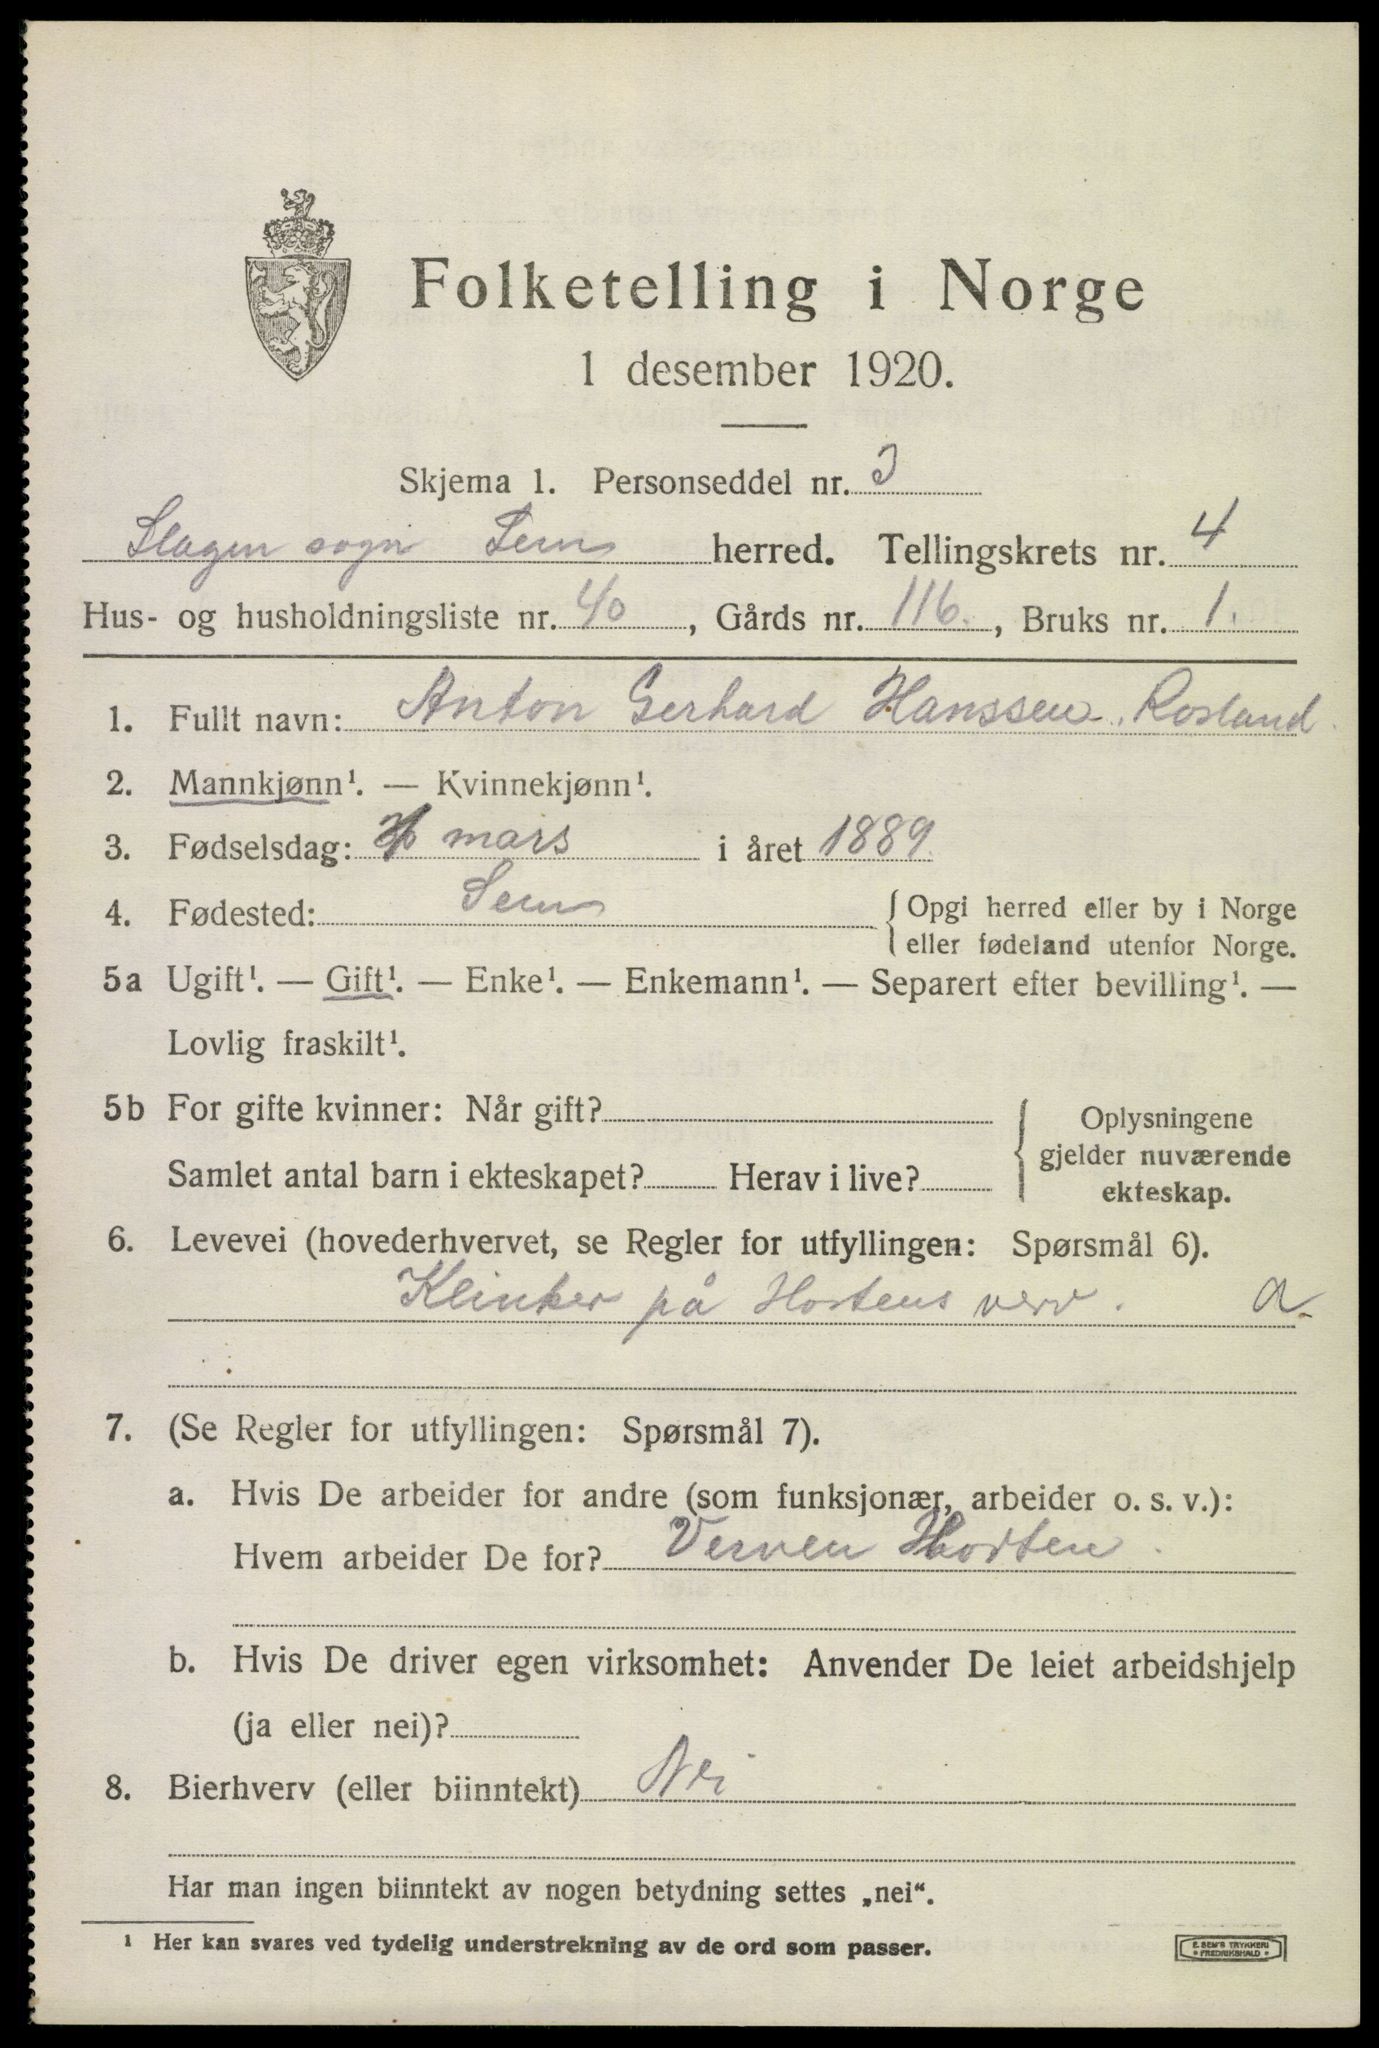 Folketelling i Norge
1 desember 1920.
Skjema 1. Personseddel nr. 3
Slagen sogn Sem herred. Tellingskrets nr. 4
Hus- og husholdningsliste nr. 40, Gårds nr. 116., Bruks nr. 1.
1. Fullt navn: Anton Gerhard Hanssen. Rosland
2. Mannkjønn¹. — Kvinnekjønn¹.
3. Fødselsdag: mars i året 1889
4. Fødested: Sem { Opgi herred eller by i Norge
eller fødeland utenfor Norge.
5a Ugift¹. — Gift¹. — Enke¹. — Enkemann¹. — Separert efter bevilling¹. —
Lovlig fraskilt¹.
5b For gifte kvinner: Når gift? { Oplysningene
gjelder nuværende
Samlet antal barn i ekteskapet? Herav i live? ekteskap.
6. Levevei (hovederhvervet, se Regler for utfyllingen: Spørsmål 6).
Klinker på Hortens verv. a.
7. (Se Regler for utfyllingen: Spørsmål 7).
a. Hvis De arbeider for andre (som funksjonær, arbeider o. s. v.):
Hvem arbeider De for? Verven Horten.
b. Hvis De driver egen virksomhet: Anvender De leiet arbeidshjelp
(ja eller nei)?
8. Bierhverv (eller biinntekt) Nei
Har man ingen biinntekt av nogen betydning settes „nei“.
¹ Her kan svares ved tydelig understrekning av de ord som passer.
E. SEM'S TRYKKERI
• FREDRIKSHALD •